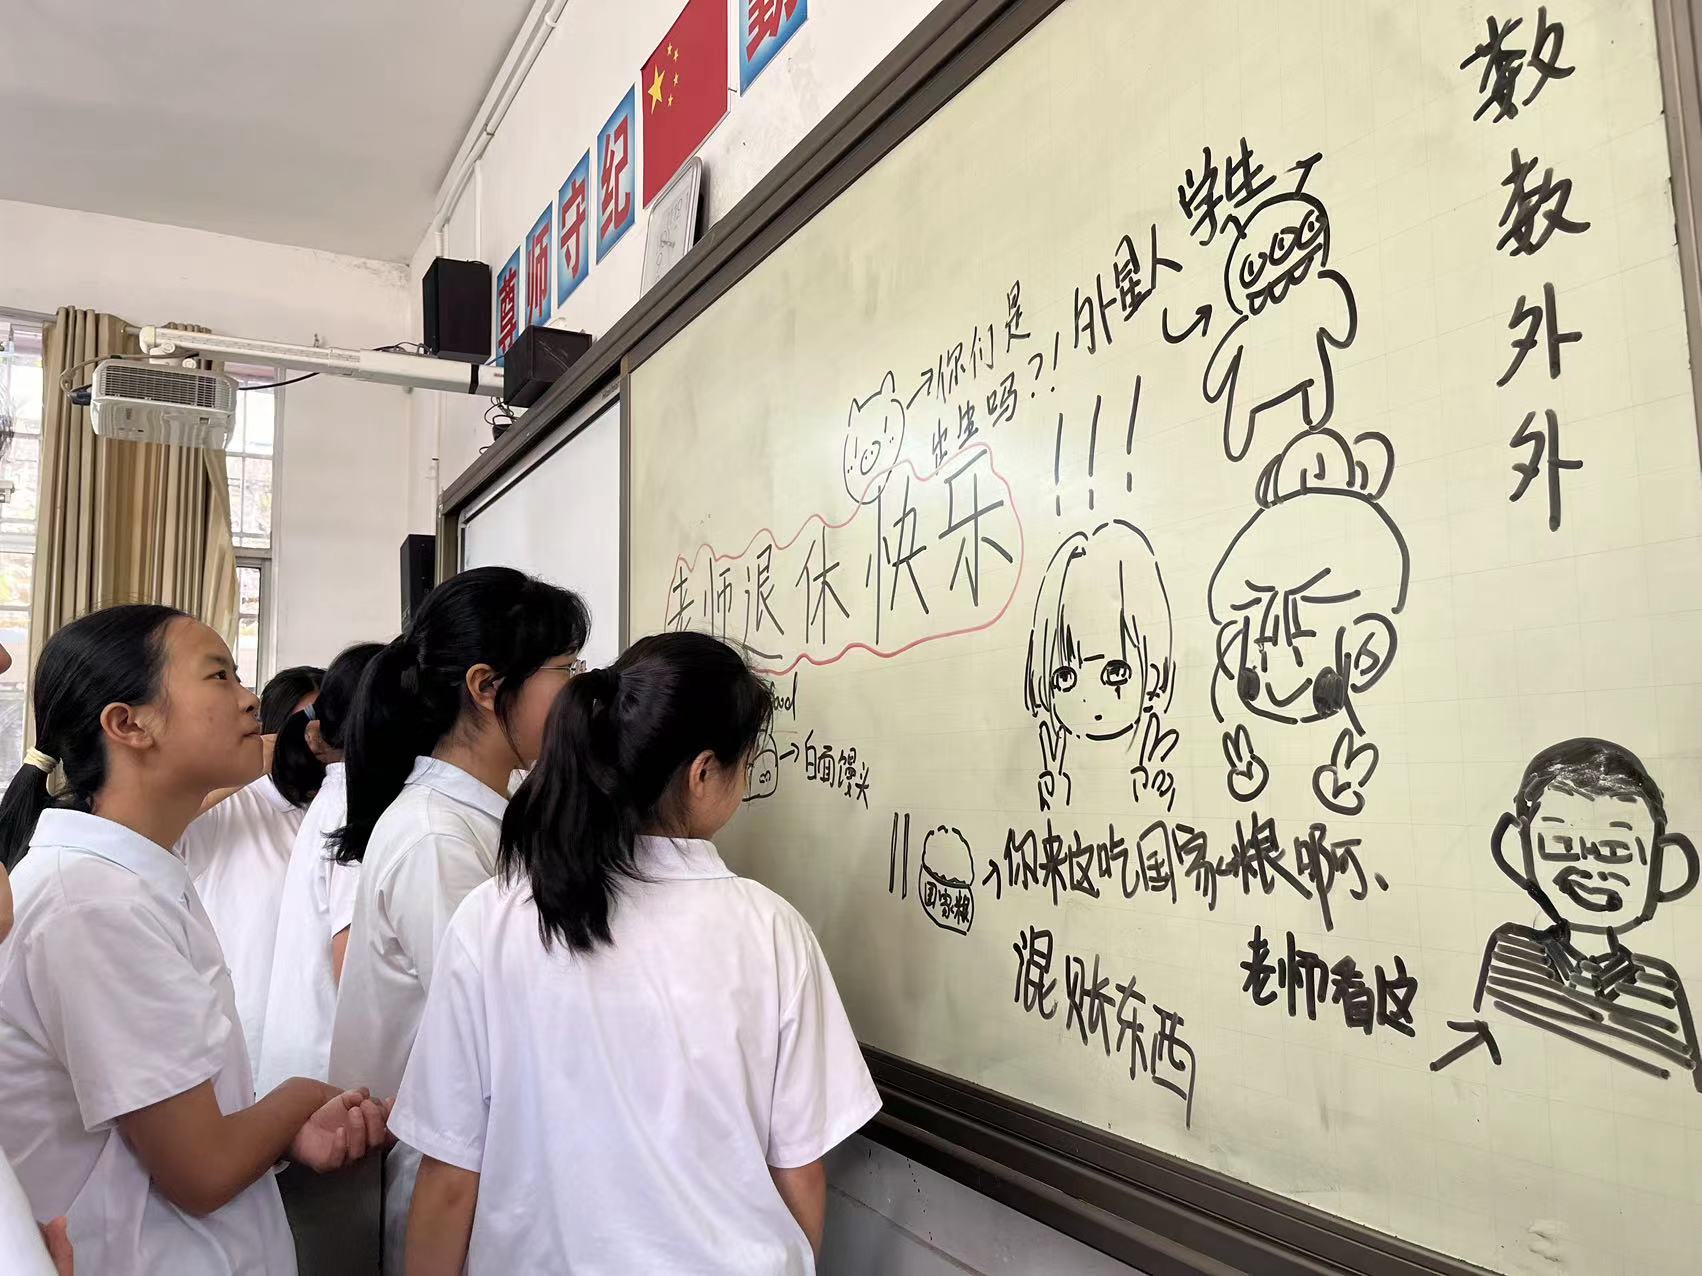 尊师守纪
数数外外
学生
外星人
你们是
出生吗?!
!!!
老师退休快乐
白面馒头
国家粮
你来这吃国家粮啊、
混账东西
老师看这